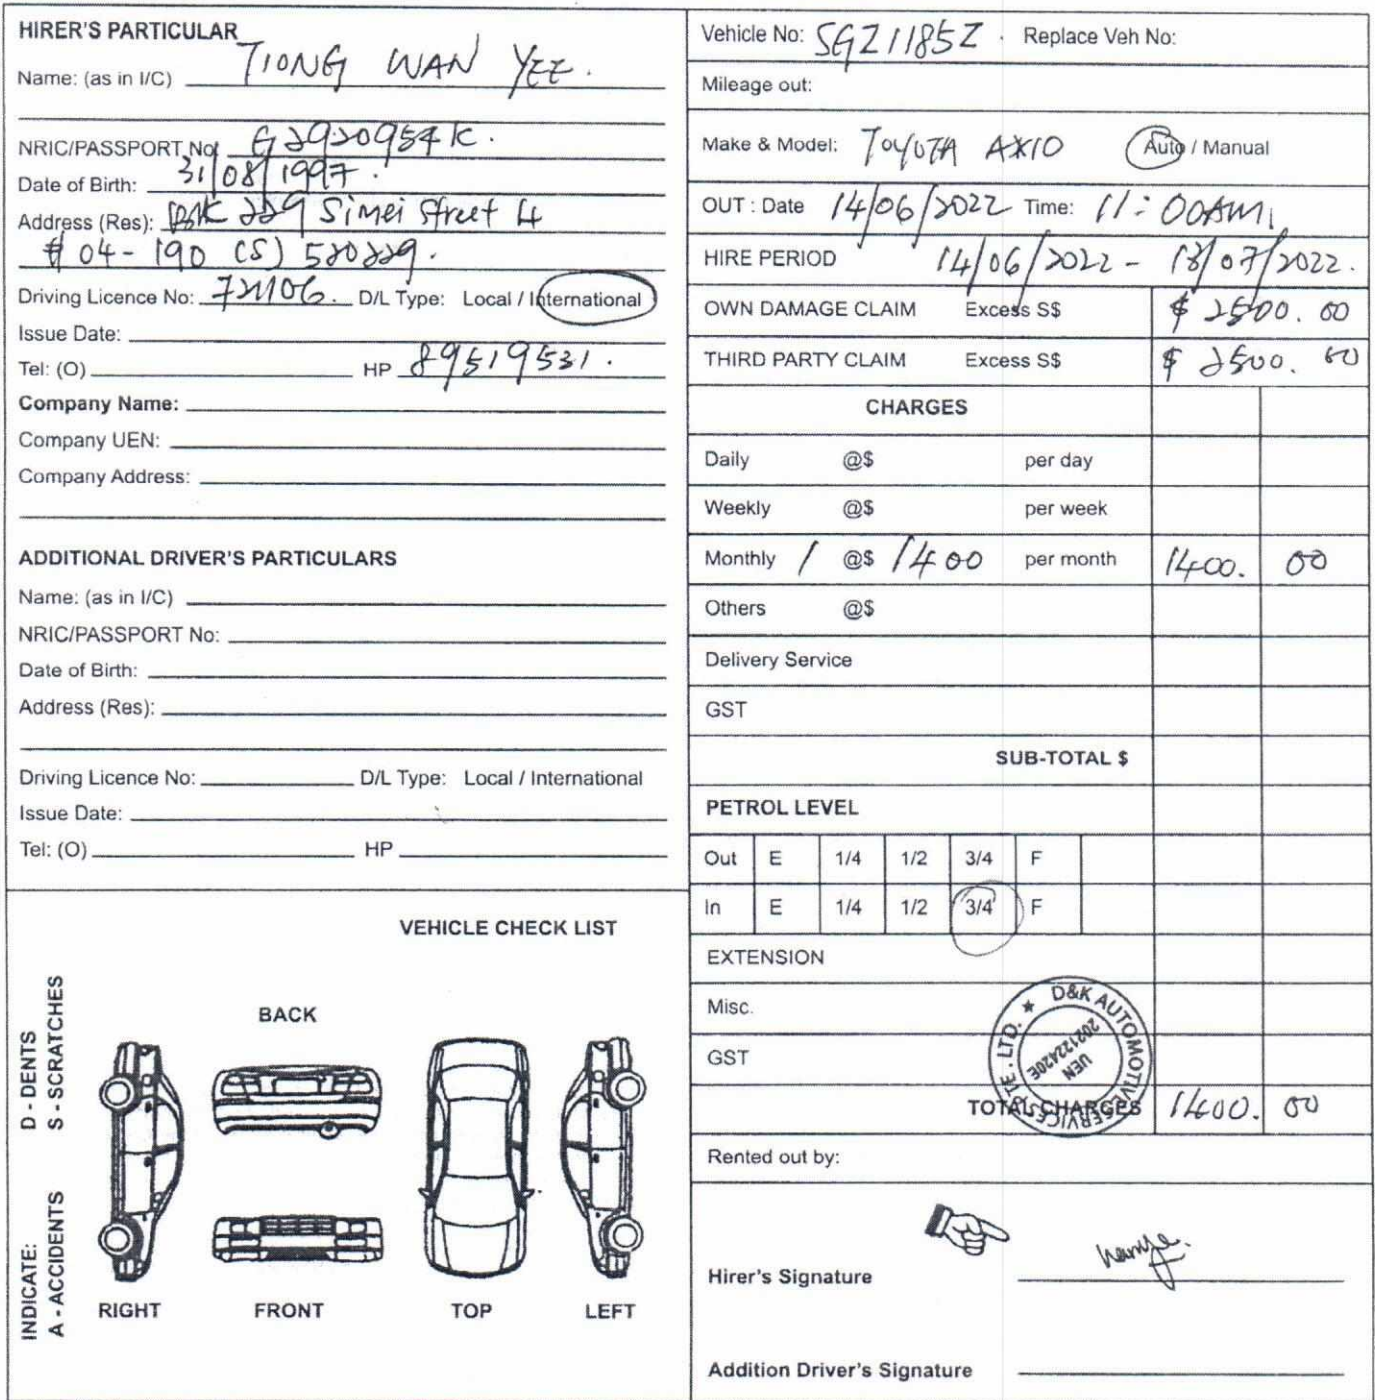 HIRER'S PARTICULAR
Name: (as in I/C) TIONG WAN YEE.
NRIC/PASSPORT No: G2920954K.
Date of Birth: 31/08/1997.
Address (Res): BLK 229 Simei Street 4
# 04-190 (S) 520229.
Driving Licence No: 721106. D/L Type: Local / International
Issue Date:
Tel: (O) HP 89519531.
Company Name:
Company UEN:
Company Address:
ADDITIONAL DRIVER'S PARTICULARS
Name: (as in I/C)
NRIC/PASSPORT No:
Date of Birth:
Address (Res):
Driving Licence No: D/L Type: Local / International
Issue Date:
Tel: (O) HP
VEHICLE CHECK LIST
INDICATE: D - DENTS
A - ACCIDENTS S - SCRATCHES
BACK
RIGHT FRONT TOP LEFT
Vehicle No: SGZ1185Z. Replace Veh No:
Mileage out:
Make & Model: TOYOTA AXIO Auto / Manual
OUT : Date 14/06/2022 Time: 11:00AM.
HIRE PERIOD 14/06/2022 - 13/07/2022.
OWN DAMAGE CLAIM Excess S$ $ 2500.00
THIRD PARTY CLAIM Excess S$ $ 2500.00
CHARGES
Daily @$ per day
Weekly @$ per week
Monthly 1 @$ 1400 per month 1400. 00
Others @$
Delivery Service
GST
SUB-TOTAL $
PETROL LEVEL
Out E 1/4 1/2 3/4 F
In E 1/4 1/2 3/4 F
EXTENSION
Misc.
GST
D&K AUTOMOTIVE SERVICES PTE. LTD. ★
UEN
202122420E
TOTAL CHARGES 1400. 00
Rented out by:
Hirer's Signature
Addition Driver's Signature